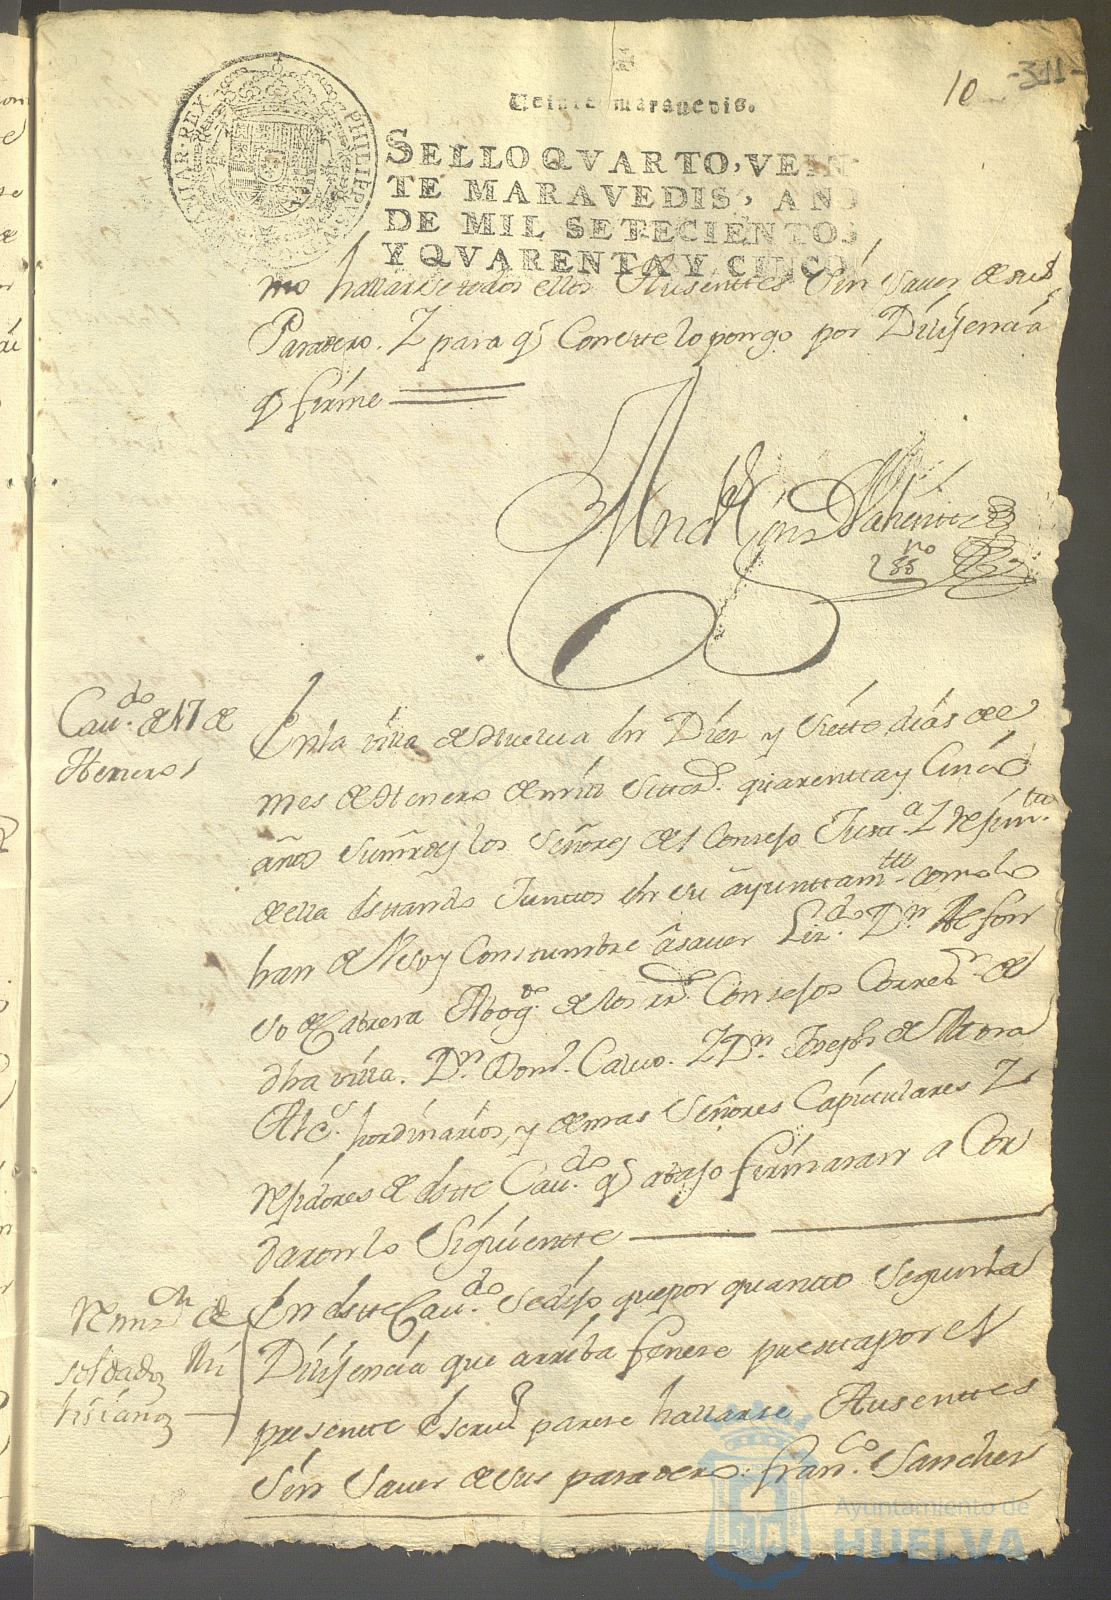 10 -311-
Veinte maravedis.
SELLO QVARTO, VEIN
TE MARAVEDIS, AÑO
DE MIL SETECIENTOS
Y QVARENTA Y CINCO
HIAR · REX PHILIPPVS
mo hallarse todos ellos Ausenttes Sin Saver de sus
Paradero. Y para q Conste lo pongo por Dilijencia
q firme
Cav.do de 17 de
Henero
En la villa de Huelva en Diez y Siette dias de el
mes de Henero de mill settez.s quarentta y Cinco
años sus mrds los Señores del Consejo Justt.a Y Rejim.tto
de ella esttando Junttos en su ayunttam.tto como lo
han de Uso y Constumbre a saver Liz.do Dn Alfon
so de Cabrera Abog.do de los rr.s Consejos Correx.r de
dha villa. Dn Dom.o Calvo. Y Dn Joseph de Mora
Alc.s hordinarios, y demas Señores Capittulares Y
rejidores de estte Cav.do q abajo firmaran a Cor
daron lo Siguientte
Remis.on de
soldados Mi
lisianos
En estte Cav.do se dijo que por quantto Segun la
Dilijencia que arriba fenese puesta por el
presentte Escriv.o parese hallarse Ausenttes
Sin Saver de sus paradero. Fran.co Sanches
Ayuntamiento de
HUELVA